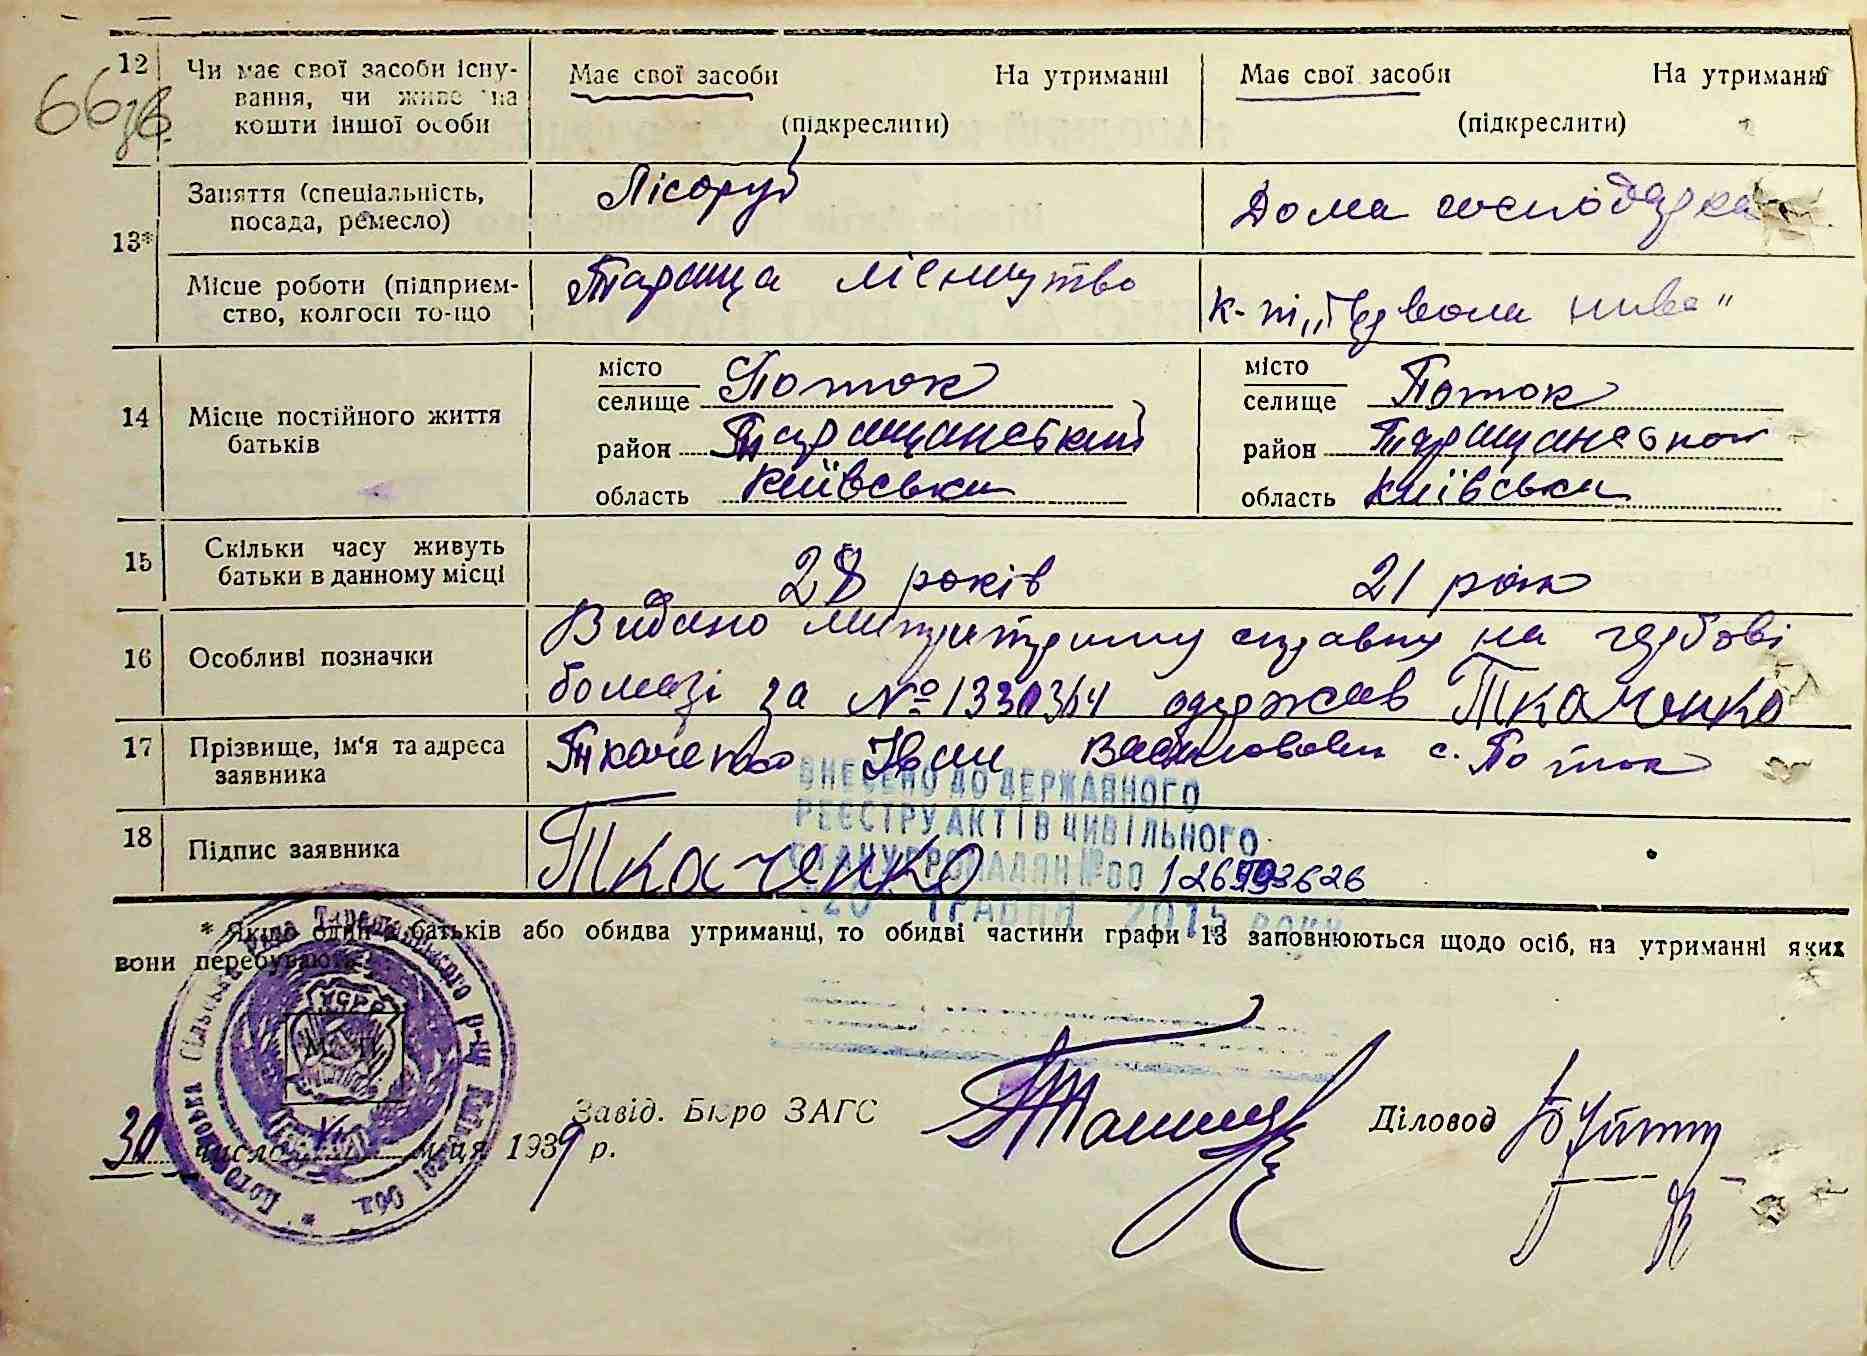 66зв.
12 Чи має свої засоби існу-
вання, чи живе на
кошти іншої особи
Має свої засоби На утриманні
(підкреслити)
Має свої засоби На утриманні
(підкреслити)
13*
Заняття (спеціальність,
посада, ремесло)
Лісоруб
Дома господарка
Місце роботи (підприєм-
ство, колгосп то-що
Тараща лісництво
к-п „Червона нива"
14 Місце постійного життя
батьків
місто
селище Поток
район Таращанський
область Київська
місто
селище Поток
район Таращанського
область Київська
15 Скільки часу живуть
батьки в данному місці
28 років
21 рік
16 Особливі позначки
Видано метричну справку на гербові
бомазі за № 1330364 одержав Ткаченко
17 Прізвище, ім'я та адреса
заявника
Ткаченко Іван Васильович с. Поток
18 Підпис заявника
Ткаченко
ВНЕСЕНО ДО ДЕРЖАВНОГО
РЕЄСТРУ АКТІВ ЦИВІЛЬНОГО
СТАНУ ГРОМАДЯН № 00
20 ТРАВНЯ 2015 РОКУ
* Якщо один з батьків або обидва утриманці, то обидві частини графи 13 заповнюються щодо осіб, на утриманні яких
вони перебувають.
Потоцька Сільська Рада Таращанського р-ну Київської Обл.
УСРР
Завід. Бюро ЗАГС
Діловод
30 числа м-ця 1939 р.